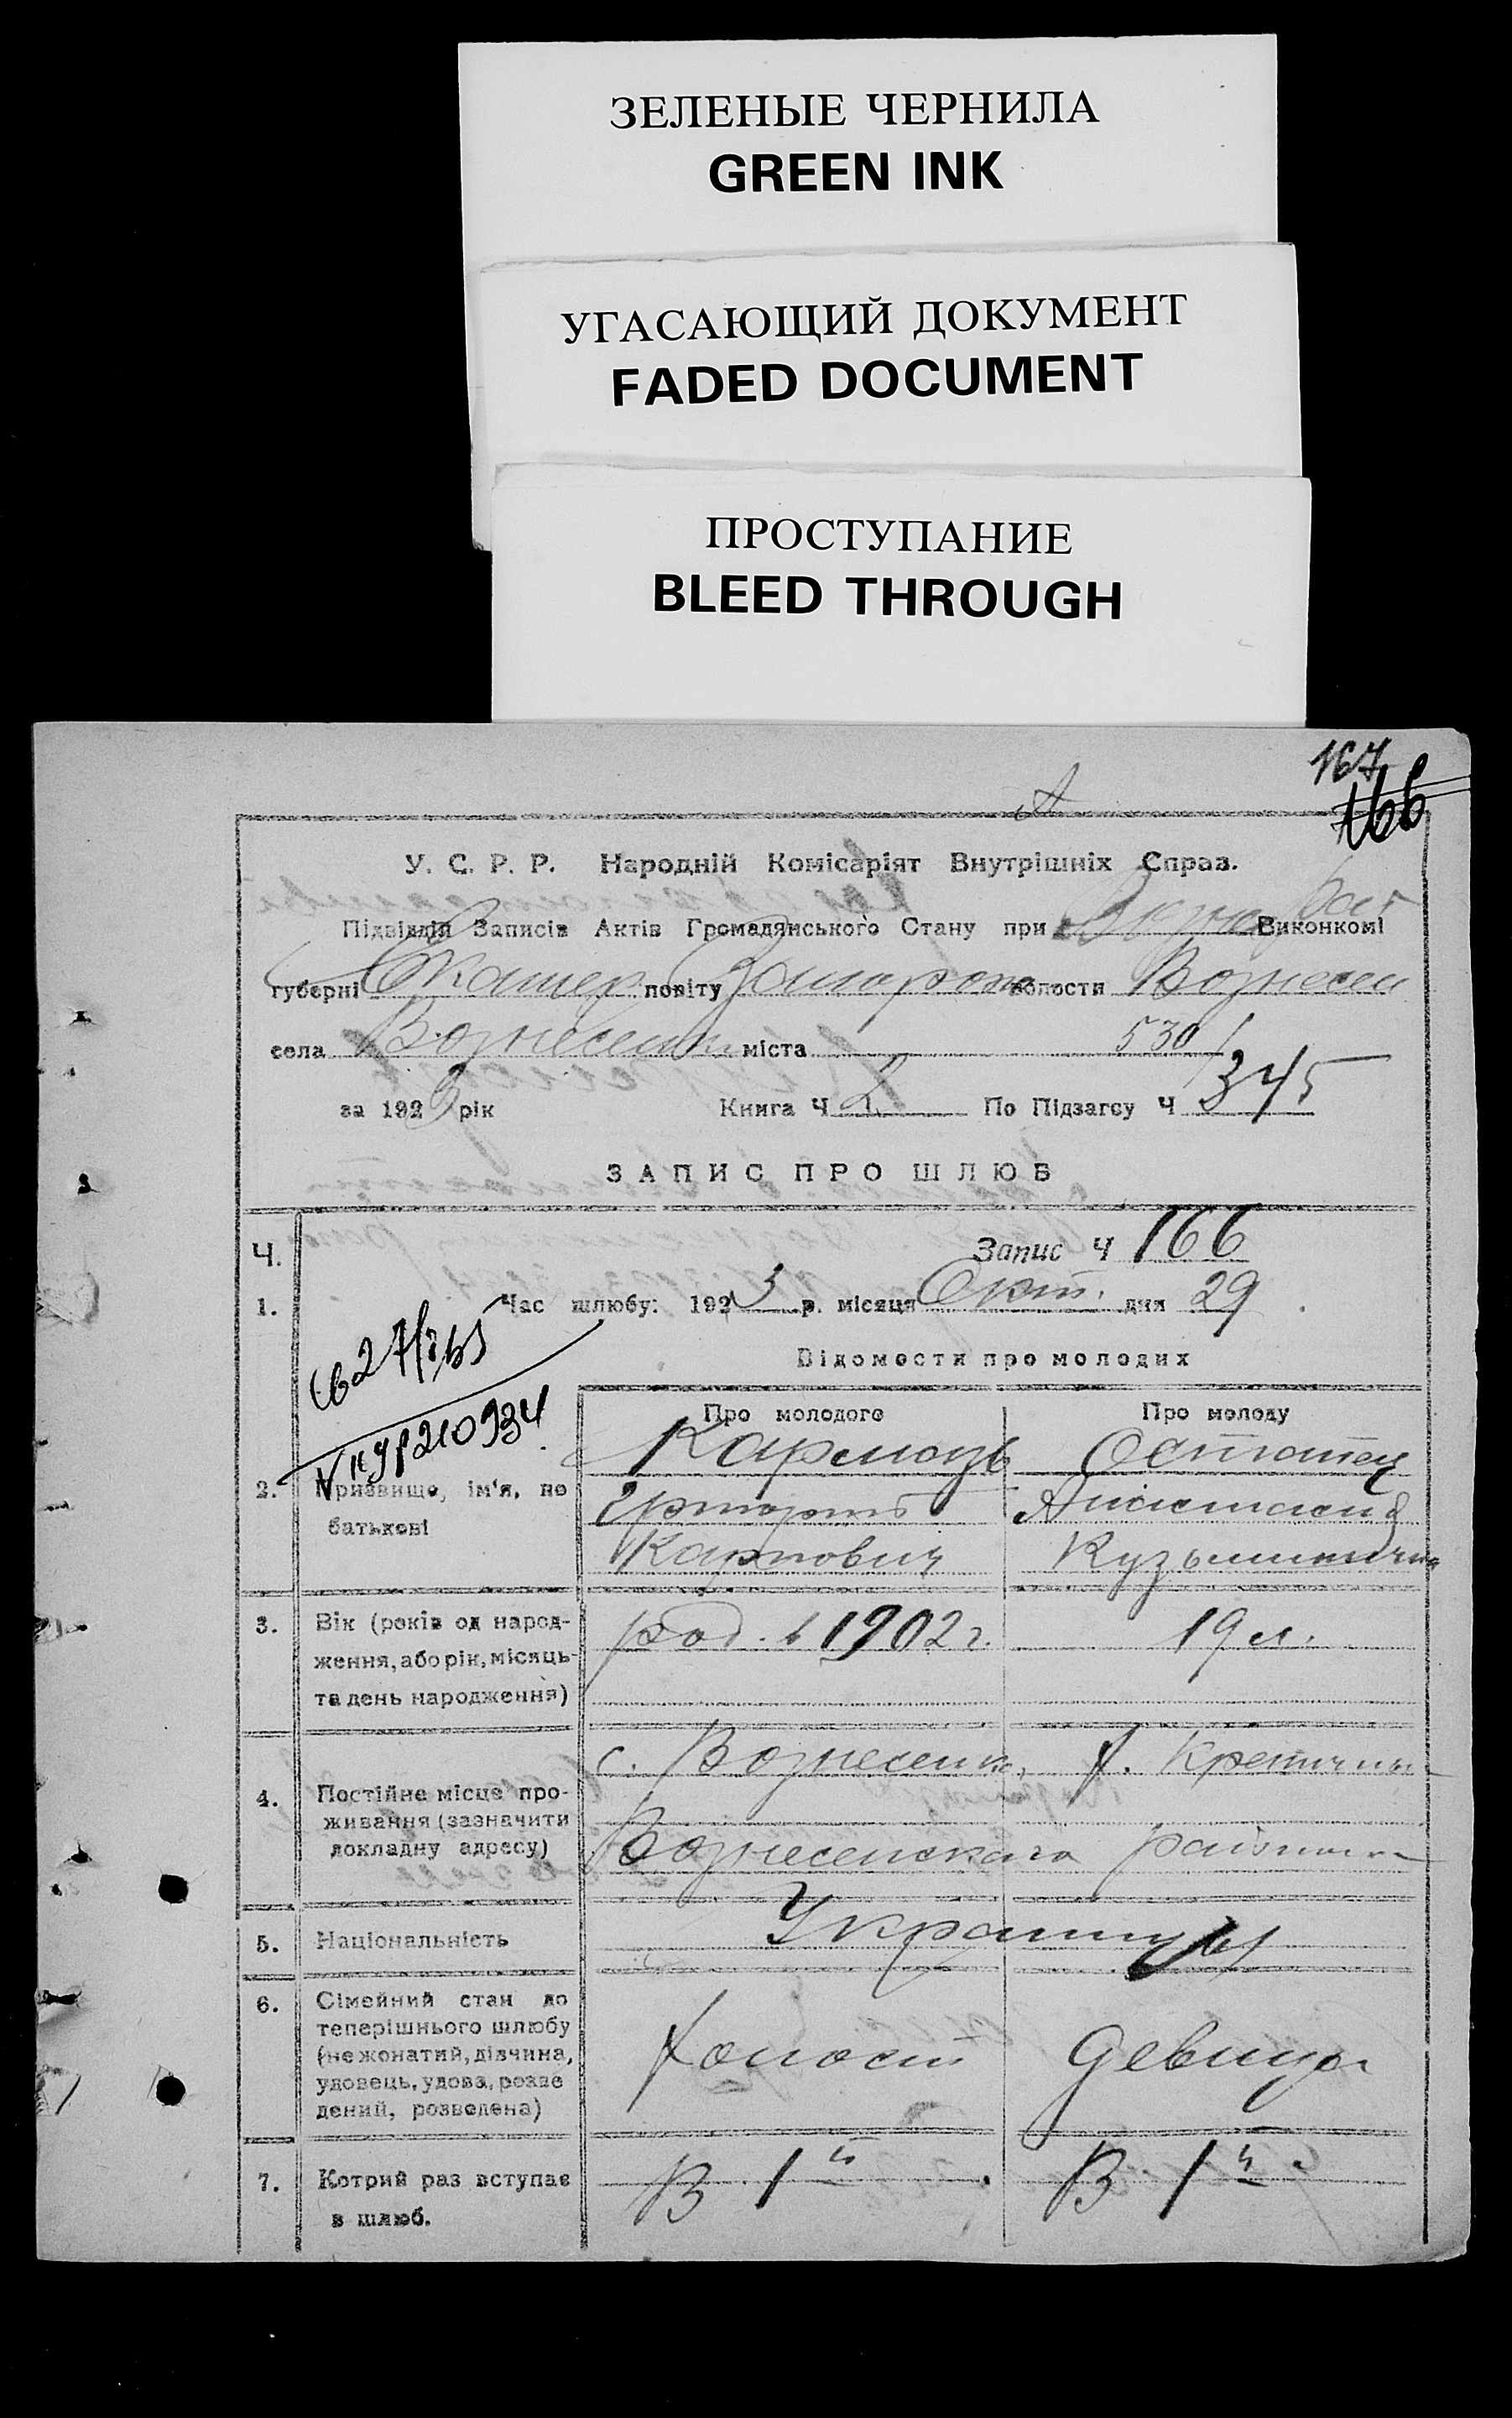 ЗЕЛЕНЫЕ ЧЕРНИЛА
GREEN INK
УГАСАЮЩИЙ ДОКУМЕНТ
FADED DOCUMENT
ПРОСТУПАНИЕ
BLEED THROUGH
167
166
У. С. Р. Р. Народній Комісаріят Внутрішніх Справ.
Підвідділ Записів Актів Громадянського Стану при Виконкомі
губерні Екатер повіту Запорож волости Вознесен
села Вознесенк міста 530
за 1923 рік Книга Ч 2 По Підзагсу Ч 345
ЗАПИС ПРО ШЛЮБ
Ч. Запис Ч 166
1. Час шлюбу: 1923 р. місяця Окт. дня 29
Відомости про молодих
Про молодого Про молоду
2. Призвище, ім'я, по батькові
Кармазь
Григорий
Карпович
Анастасия
Кузьминична
3. Вік (років од народ-
ження, або рік, місяць
та день народження)
род. в 1902 г. 19 л.
4. Постійне місце про-
живання (зазначити
докладну адресу)
с. Вознесенка,
Вознесенского района
5. Національність Украинцы
6. Сімейний стан до
теперішнього шлюбу
(нежонатий, дівчина,
удовець, удова, розве
дений, розведена)
холост девица
7. Котрий раз вступає
в шлюб.
В 1й В 1й